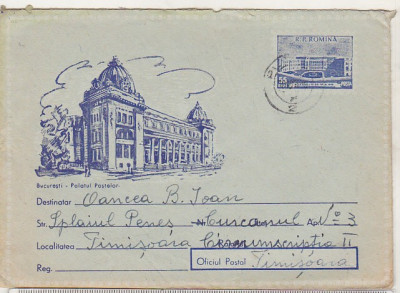 R.P. ROMINA
55
București - Palatul Poștelor
Destinatar Oancea B. Ioan
Str. Splaiul Peneș Curcanul Nº 3
Localitatea Timișoara Circumscriptia II
Reg. Oficiul Poștal Timișoara